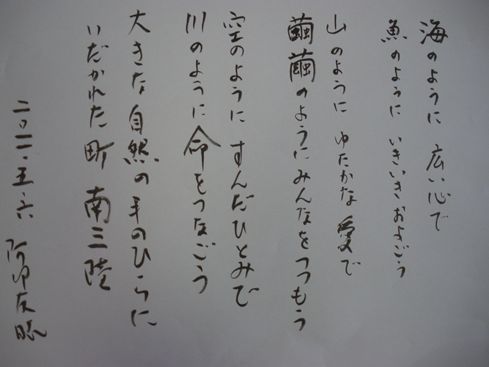 海のように 広い心で
魚のように いきいきおよごう
山のように ゆたかな愛で
繭繭のようにみんなをつつもう
空のように すんだひとみで
川のように 命をつなごう
大きな自然の手のひらに
いだかれた町 南三陸
二〇一一・五・六